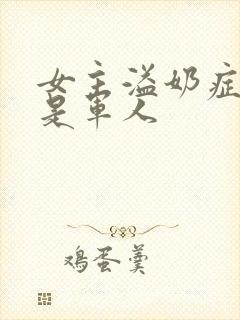 女主溢奶症
是军人
鸡蛋羹